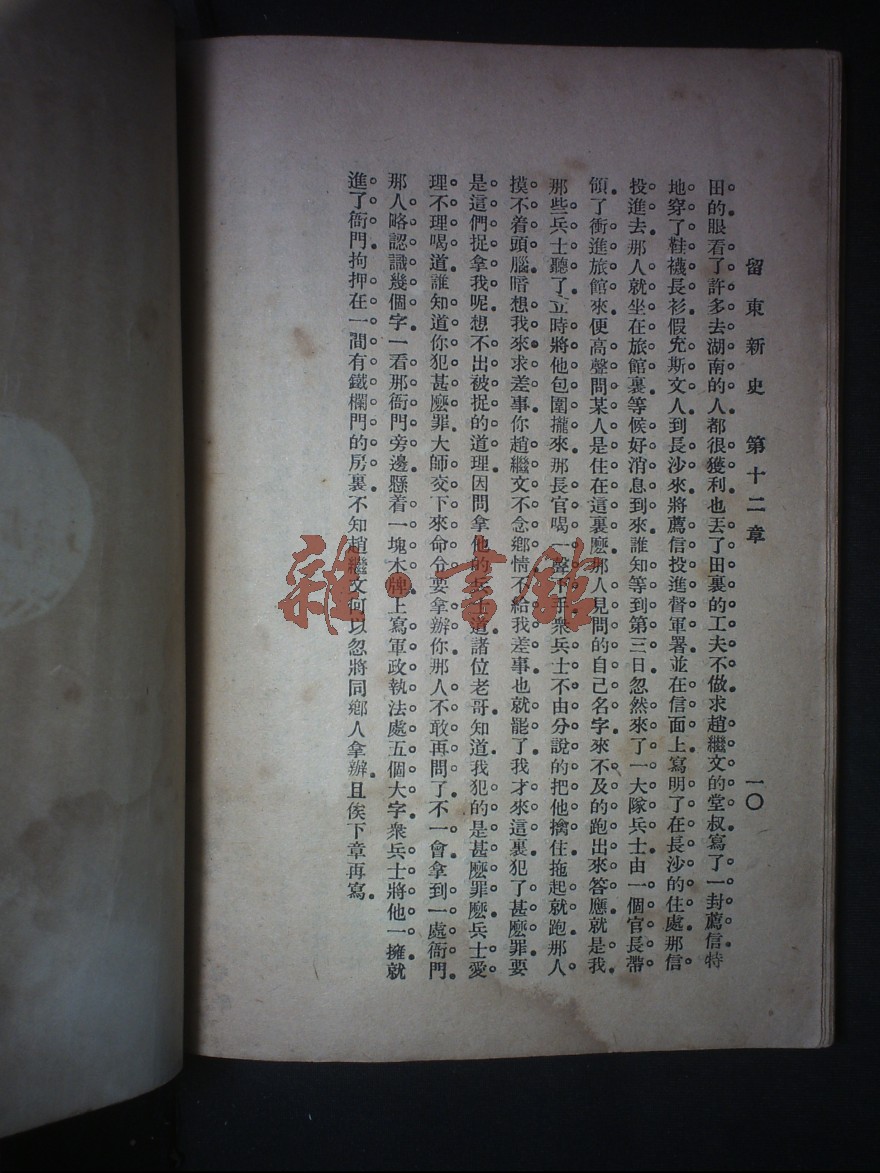 留東新史　第十二章　一〇
田的眼看了許多去湖南的人都很獲利也丟了田裏的工夫不做求趙繼文的堂叔寫了一封薦信特
地穿了鞋襪長衫假充斯文人到長沙來將薦信投進督軍署並在信面上寫明了在長沙的住處那信
投進去那人就坐在旅館裏等候好消息到來誰知等到第三日忽然來了一大隊兵士由一個官長帶
領了衝進旅館來便高聲問某人是住在這裏麽那人見問的自己名字來不及的跑出來答應就是我
那些兵士聽了立時將他包圍攏來那長官喝一聲下手衆兵士不由分說的把他擒住拖起就跑那人
摸不着頭腦暗想我來求差事你趙繼文不念鄉情不給我差事也就罷了我才來這裏犯了甚麽罪要
是這們捉拿我呢想不出被捉的道理因問拿他的兵士道諸位老哥知道我犯的是甚麽罪麽兵士愛
理不理喝道誰知道你犯甚麽罪大師交下來命令要拿辦你那人不敢再問了不一會拿到一處衙門
那人略認識幾個字一看那衙門旁邊懸着一塊木牌上寫軍政執法處五個大字衆兵士將他一擁就
進了衙門拘押在一間有鐵欄門的房裏不知趙繼文何以忽將同鄉人拿辦且俟下章再寫
雜·書館